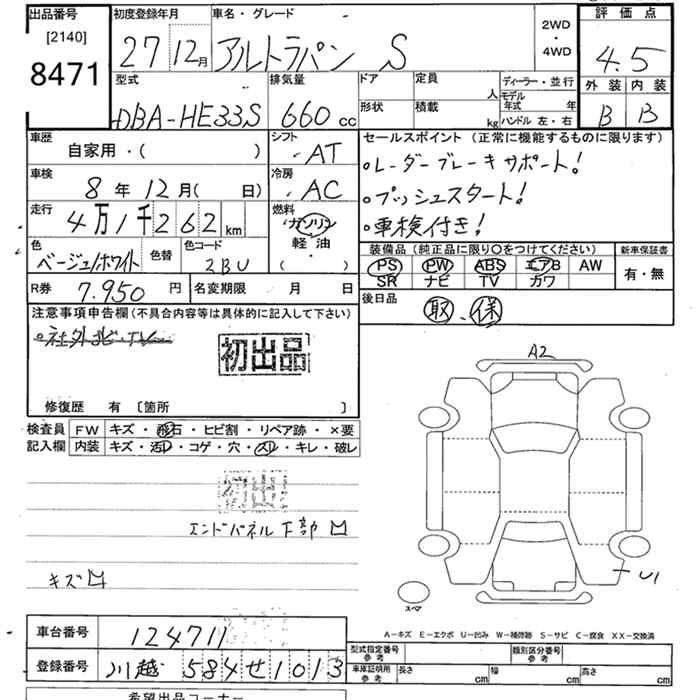 出品番号
[2140]
8471
初度登録年月 車名・グレード
27 12月 アルトラパン S
2WD
・
4WD
評価点
4.5
外装 内装
B B
型式 排気量 ドア 定員 ディーラー・並行
DBA-HE33S 660cc 人 モデル年式 年
形状 積載 kg ハンドル 左・右
車歴 シフト セールスポイント(正常に機能するものに限ります)
自家用・( ) AT
・レーダーブレーキサポート!
車検 冷房
8年12月( 日) AC
・プッシュスタート!
走行 燃料
4万1千262km ガソリン
軽油
( )
・車検付き!
色 色替 色コード
ベージュ/ホワイト 2BU
装備品(純正品に限り○をつけてください) 新車保証書
PS PW ABS エアB AW 有・無
SR ナビ TV カワ
R券 7.950円 名変期限 月 日
後日品
取、保
注意事項申告欄(不具合内容等は具体的に記入して下さい)
・社外ナビ・TV
初出品
修復歴 有 〔箇所 〕
A2
検査員 FW キズ・飛石・ヒビ割・リペア跡・×要
記入欄 内装 キズ・汚レ・コゲ・穴・スレ・キレ・破レ
初出
エンドパネル下部凹
キズ凹
U1
スペア
A-キズ E-エクボ U-凹み W-補修跡 S-サビ C-腐食 XX-交換済
車台番号 124711
登録番号 川越 584 せ 1013
型式指定番号 参考 類別区分番号 参考
車庫証明用 参考 長さ cm 幅 cm 高さ cm
希望出品コーナー